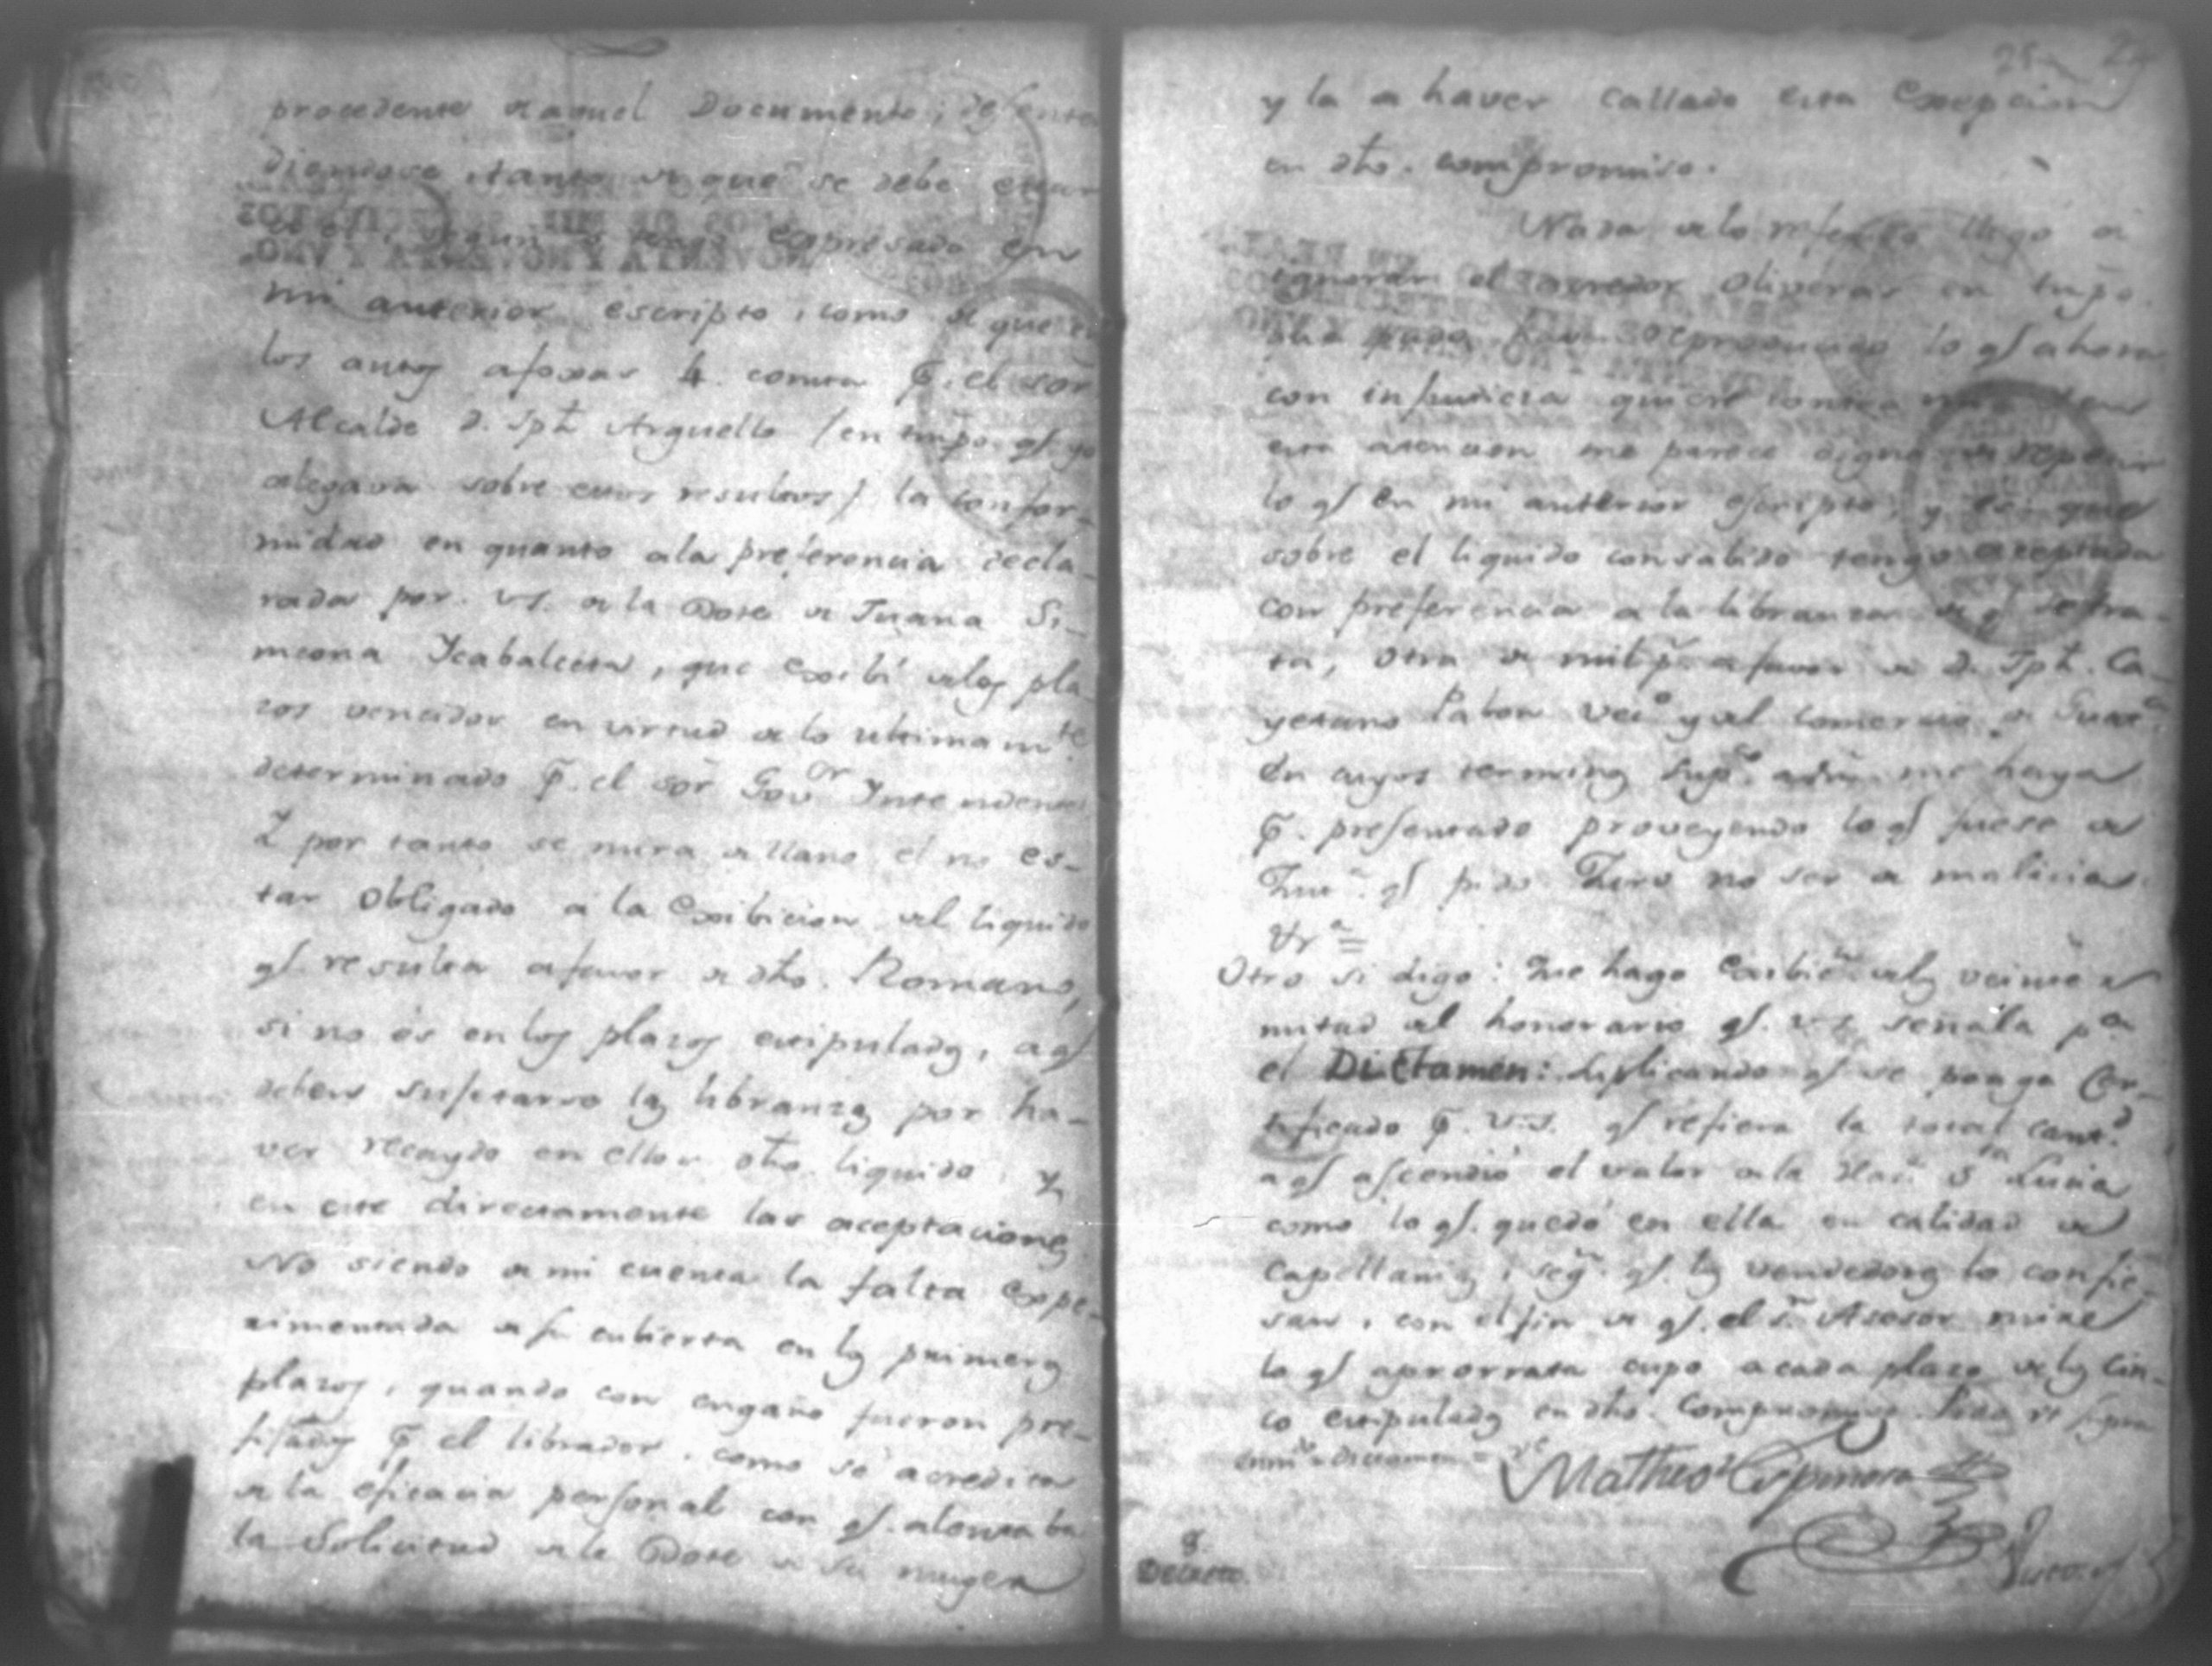 procedente de aquel Documento; desenten
diendose tanto de que se debe estar
a el, segun tengo expresado en
mi anterior escripto, como de que en
los autos afoxas 4. consta p͠. el sor͠
Alcalde D. Jph Arguello (en tmpo. q͠ yo
alegava sobre estos resultos) la confor-
midad en quanto ala preferencia decla-
rada por. VS. a la Dote de Juana Si-
meona Ycabalceta, que exibi de los pla
zos vencidos en virtud de lo ultimam.te
determinado p͠. el sor͠ Gov.or Yntendente
Y por tanto se mira de llano el no es-
tar Obligado a la Exibicion del liquido
q͠. resulta afavor de dho. Romano,
si no es en los plazos estipulados, a q͠
deben sujetarse las libranzas por ha-
ver recaydo en ellos dho. liquido, y
en este directamente las aceptaciones
No siendo de mi cuenta la falta Expe-
rimentada de su cubierta en los primeros
plazos, quando con engaño fueron pre-
fijados p͠. el librador, como se acredita
de la eficacia personal con q͠. alentaba
la Solicitud de la Dote de su muger
25 24
y la de haver callado esta Exepcion
en dho. compromiso.
Nada de lo referido llego a
ignorar el acredor Oliveras en tmpo.
lo q͠ ahora
con injusticia quiere contra
esta atencion me parece digno de repetir
lo q͠ en mi anterior escripto, y es que
sobre el liquido consabido tengo aceptada
con preferencia a la libranza de q͠ se tra-
ta, otra de mil p͠. a favor de D. Jph. Ca-
yetano Pabon Vec.o y del comercio de Guat.a
En cuyos terminos Sup.co me haya
p͠. presentado proveyendo lo q͠ fuese de
Just.a q͠ pido Juro no ser de malicia.
Vr.a =
Otro si digo: Que hago Exibic.on de los veinte
mitad del honorario q͠. V.S. señala p.a
el Dictamen: suplicando q͠ se ponga Cer-
tificado p͠. V.S. q͠ refiera la total cant.d
a q͠ ascendió el valor de la Hac.da S.ta Lucia
como lo q͠. quedó en ella en calidad de
Capellanias, seg.n q͠. los vendedores lo confie-
san, con el fin de q͠. el s.r Asesor mire
lo q͠ aprorrata cupo a cada plazo de los cin-
co estipulados en dho. Compromiso. Pido ut supra
enm.do dictamen = v.e
Matheo Espinosa
Decreto.